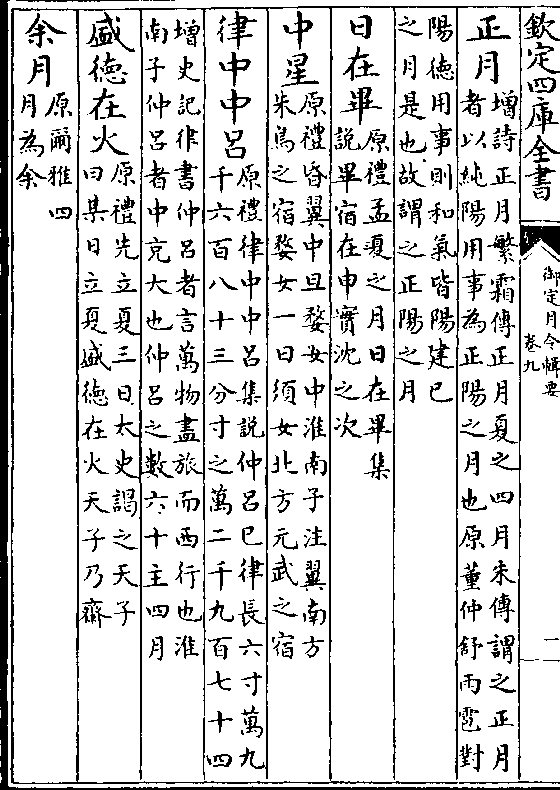 欽定四庫全書
御定月令輯要
卷九
一
正月
增詩正月繁霜傳正月夏之四月朱傳謂之正月
者以純陽用事為正陽之月也原董仲舒雨雹對
陽德用事則和氣皆陽建巳
之月是也故謂之正陽之月
日在畢
原禮孟夏之月日在畢集
說畢宿在申實沈之次
中星
原禮昏翼中旦婺女中淮南子注翼南方
朱鳥之宿婺女一曰須女北方元武之宿
律中中呂
原禮律中中呂集説仲呂巳律長六寸萬九
千六百八十三分寸之萬二千九百七十四
增史記律書仲呂者言萬物盡旅而西行也淮
南子仲呂者中充大也仲呂之數六十主四月
盛德在火
原禮先立夏三日太史謁之天子
曰某日立夏盛德在火天子乃齋
余月
原爾雅四
月為余